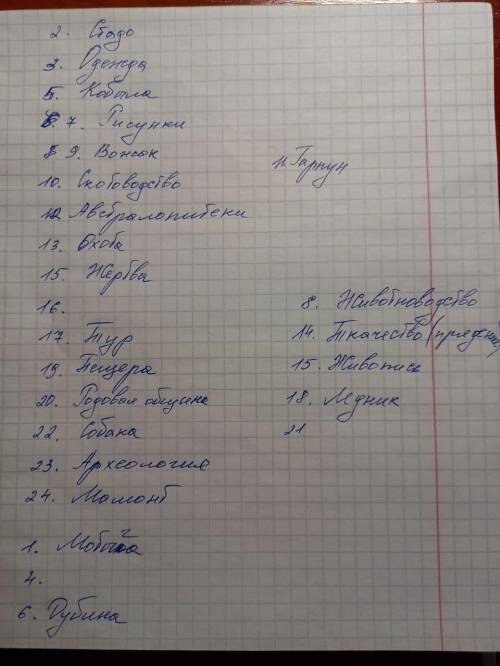 2. Стадо
3. Одежда
5. Кобыла
7. Рисунки
9. Вожак
11. Гарпун
10. Скотоводство
12. Австралопитеки
13. Охота
15. Жертва
16.
8. Животноводство
17. Тур
14. Ткачество (прядение)
19. Пещера
15. Живопись
20. Родовая община
18. Мдник
22. Собака
21
23. Археология
24. Мамонт
1.
4.
6. Дубина